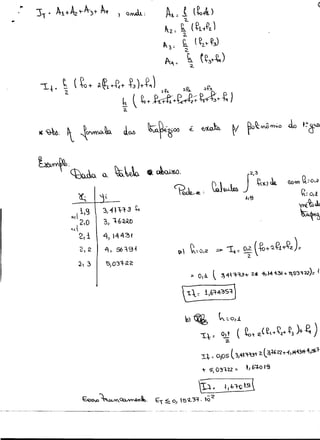 I_T = A₁+A₂+A₃+A₄ , onde: A₁ = h/2 (f₀+f₁)
A₂ = h/2 (f₁+f₂)
A₃ = h/2 (f₂+f₃)
A₄ = h/2 (f₃+f₄)
I_T = h/2 (f₀ + 2(f₁+f₂+f₃)+f₄)
* Obs. A fórmula dos trapézios é exata p/ polinômio do 1º grau
Exemplo. Dada a tabela abaixo.
xᵢ yᵢ
1,9 3,41773 f₀
2,0 3,76220
2,1 4,14431
2,2 4,56791
2,3 5,03722
Pede-se. Calcular ∫ f(x) dx com h=0,2
1,9 2,3
a) h=0,2 => I_T = 0,2/2 (f₀+2f₁+f₂)
I_T = 1,67435
b) h=0,1
I_T = 0,1/2 (f₀+2(f₁+f₂+f₃)+f₄)
I_T = 0,05 (3,41773+2(3,7622+4,14431+4,567
+ 5,03722 = 1,67019
I_T = 1,67019
Erro Truncamento E_T ≤ 0,